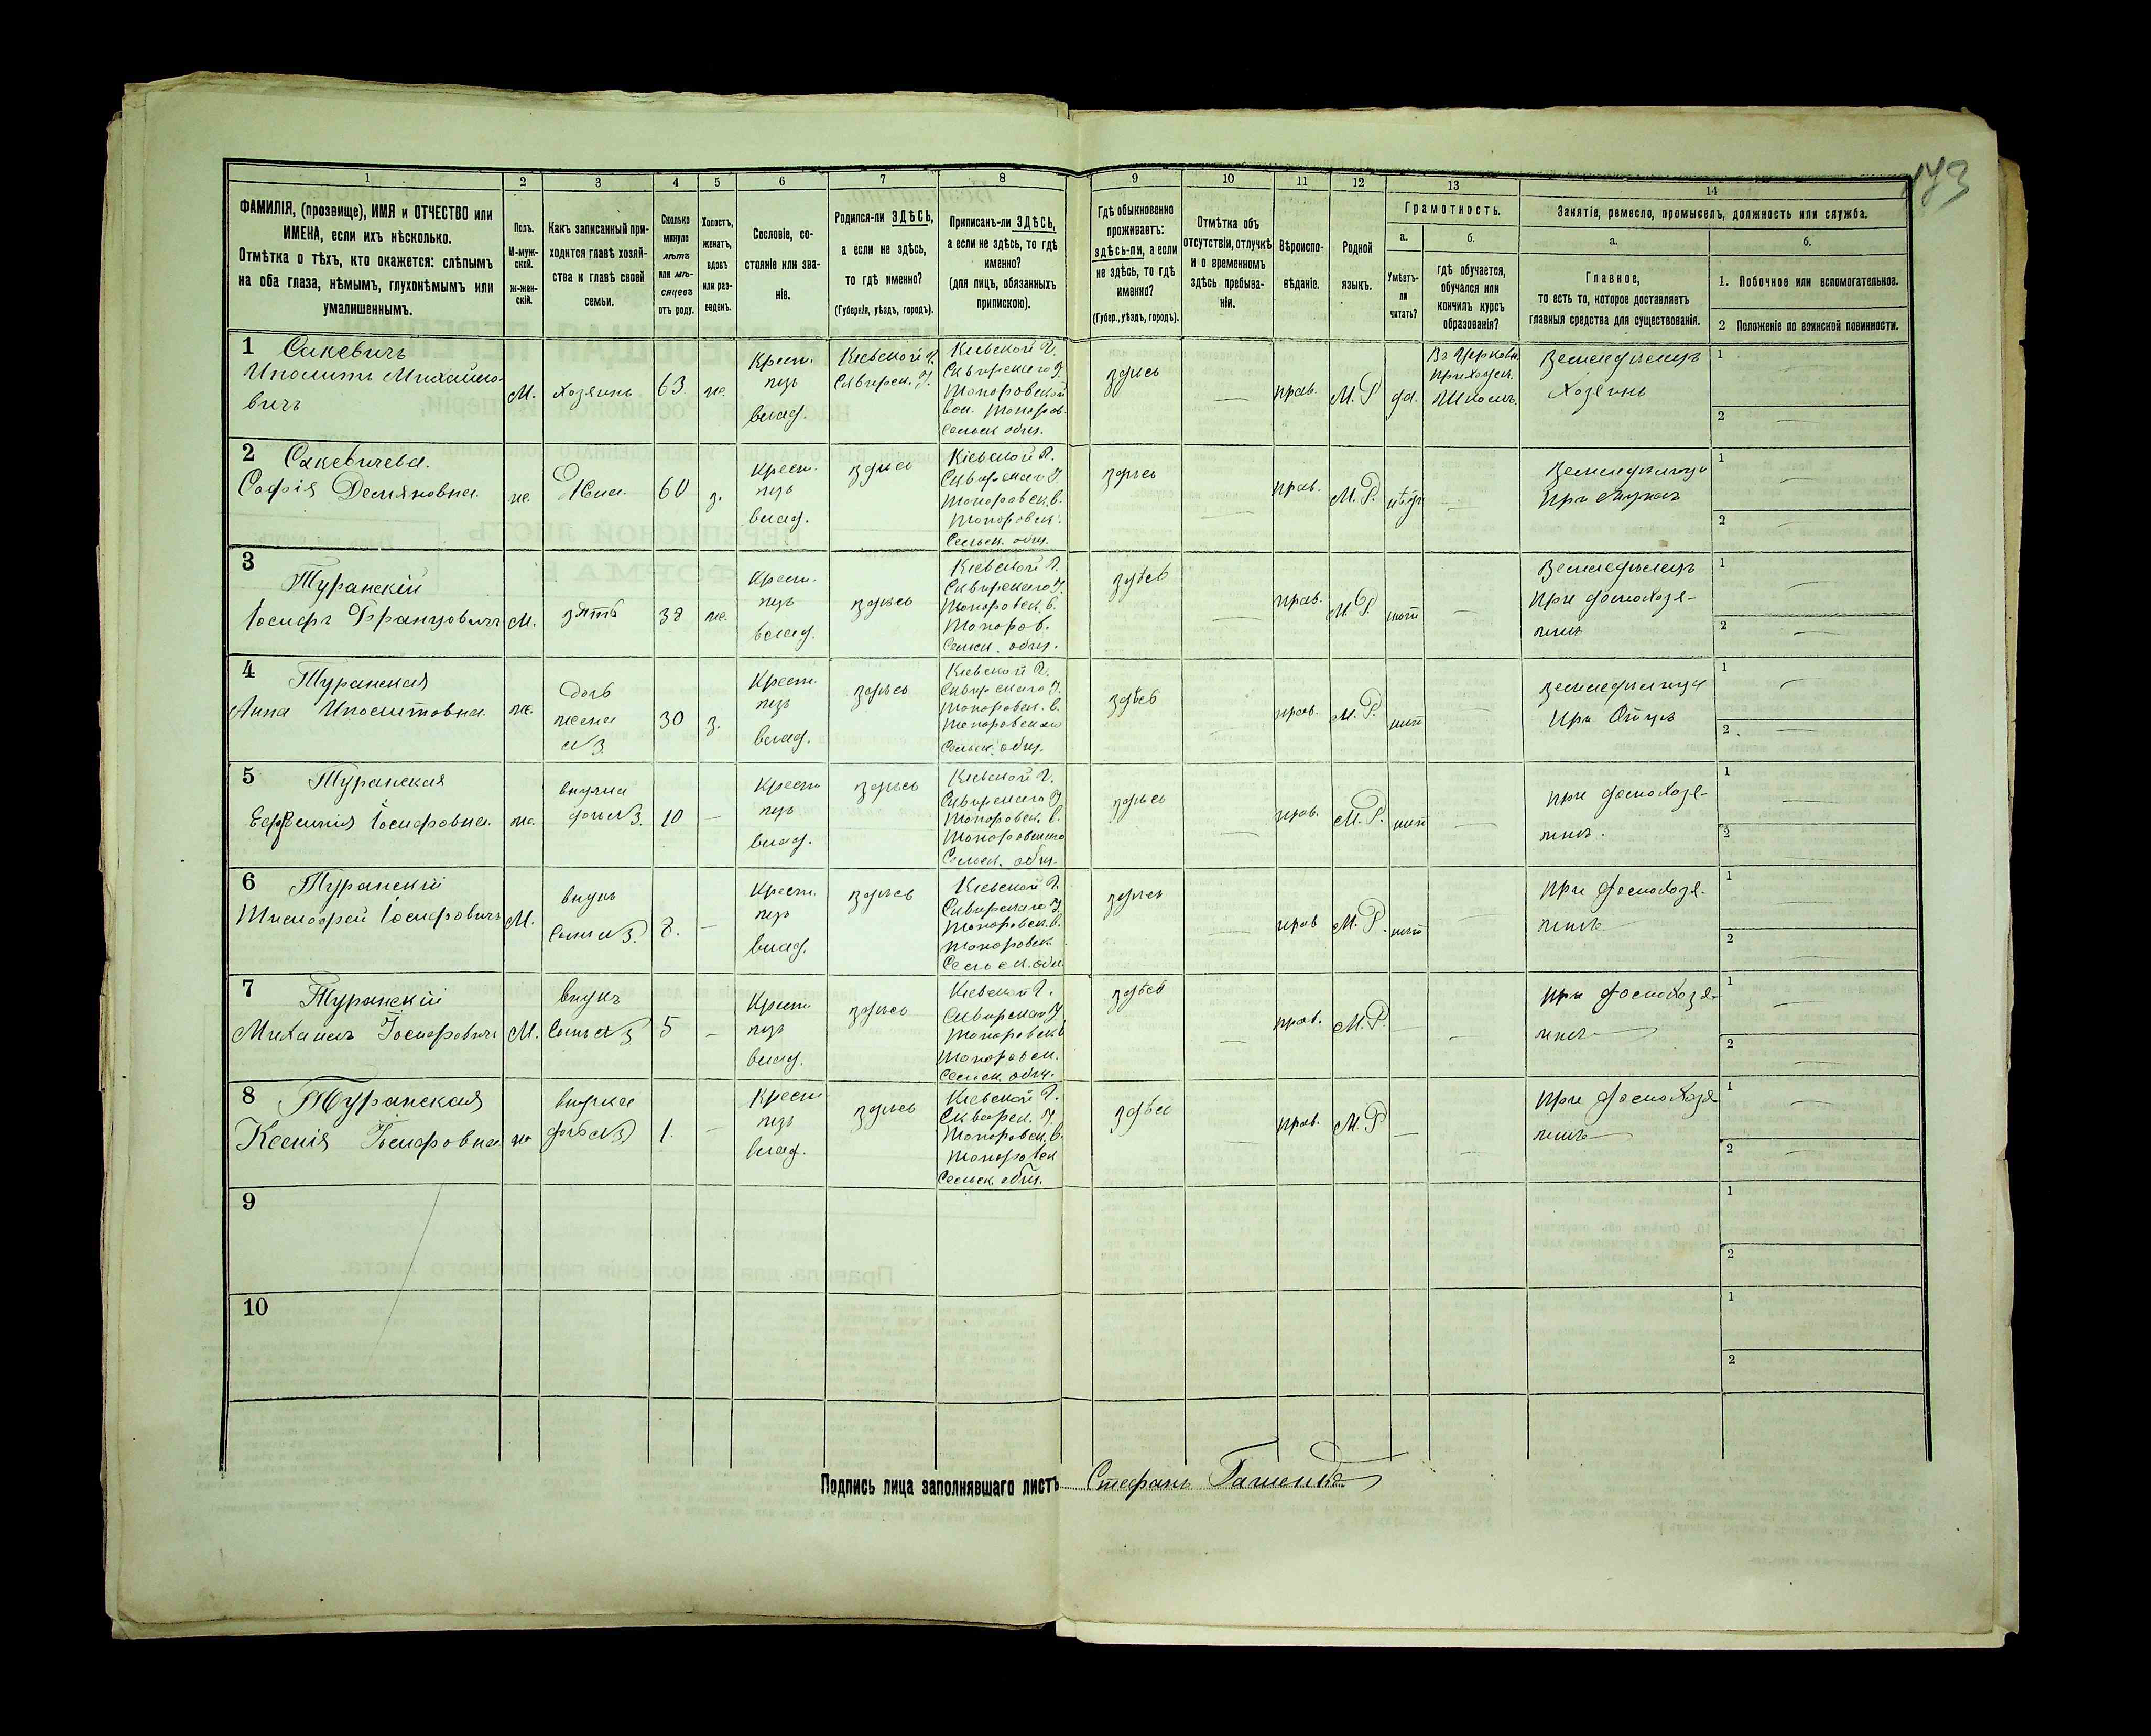 173
1 2 3 4 5 6 7 8 9 10 11 12 13 14
ФАМИЛІЯ, (прозвище), ИМЯ и ОТЧЕСТВО или
ИМЕНА, если ихъ нѣсколько.
Отмѣтка о тѣхъ, кто окажется: слѣпымъ
на оба глаза, нѣмымъ, глухонѣмымъ или
умалишеннымъ.
Полъ.
М-муж-
ской.
ж-жен-
скій.
Какъ записанный при-
ходится главѣ хозяй-
ства и главѣ своей
семьи.
Сколько
минуло
лѣтъ
или мѣ-
сяцевъ
отъ роду.
Холостъ,
женатъ,
вдовъ
или раз-
веденъ.
Сословіе, со-
стояніе или зва-
ніе.
Родился-ли ЗДѢСЬ,
а если не здѣсь,
то гдѣ именно?
(Губернія, уѣздъ, городъ).
Приписанъ-ли ЗДѢСЬ,
а если не здѣсь, то гдѣ
именно?
(для лицъ, обязанныхъ
припискою).
Гдѣ обыкновенно
проживаетъ:
здѣсь-ли, а если
не здѣсь, то гдѣ
именно?
(Губер., уѣздъ, городъ).
Отмѣтка объ
отсутствіи, отлучкѣ
и о временномъ
здѣсь пребыва-
ніи.
Вѣроиспо-
вѣданіе.
Родной
языкъ.
Грамотность.
а.
Умѣетъ-
ли
читать?
б.
гдѣ обучается,
обучался или
кончилъ курсъ
образованія?
Занятіе, ремесло, промыселъ, должность или служба.
а.
Главное,
то есть то, которое доставляетъ
главныя средства для существованія.
б.
1. Побочное или вспомогательное.
2 Положеніе по воинской повинности.
1 Сакевичъ
Иполитъ Михайло-
вичъ
М.
хозяинъ
63
же.
Крест.
изъ
влад.
Кіевской Г.
Сквирск. У.
Кіевской Г.
Сквирскаго У.
Топоровской
вол. Топоров.
Сельск общ.
здѣсь
—
прав.
М. Р.
да.
Въ Церковн.
приходск.
Школѣ.
Земледѣлецъ
Хозяинъ
1
2
2 Сакевичева.
Софія Демяновна.
же.
Жена
60
з.
Крест.
изъ
влад.
здѣсь
Кіевской Г.
Сквирскаго У.
Топоровск. в.
Топоровск.
Сельск. общ.
здѣсь
—
прав.
М. Р.
нѣтъ
—
Земледѣлица
при мужѣ
1
2
3
Туранскій
Іосифъ Францовичъ
М.
зять
38
же.
Крест.
изъ
влад.
здѣсь
Кіевской Г.
Сквирскаго У.
Топоровск. в.
Топоров.
Сельск. общ.
здѣсь
—
прав.
М. Р.
нѣт
—
Земледѣлецъ
при домохозя-
инѣ
1
2
4 Туранская
Анна Иполитовна.
же.
Дочь
жена
№3.
30
з.
Крест.
изъ
влад.
здѣсь
Кіевской Г.
Сквирскаго У.
Топоровск. в.
Топоровскаго
Сельск. общ.
здѣсь
—
прав.
М. Р.
нѣт
—
земледѣлица
при Отцѣ
1
2
5 Туранская
Ефимія Іосифовна.
же.
внучка
дочь №3.
10
—
Крест
изъ
влад.
здѣсь
Кіевской Г.
Сквирскаго У.
Топоровск. в.
Топоровскаго
Сельск. общ.
здѣсь
—
прав.
М. Р.
нѣт
—
при домохозя-
инѣ.
1
2
6 Туранскій
Тимофей Іосифовичъ
М.
внукъ
Сынъ №3.
8.
—
Крест.
изъ
влад.
здѣсь
Кіевской Г.
Сквирскаго У.
Топоровск. в.
Топоровск.
Сельск. общ.
здѣсь
—
прав
М. Р.
нѣт
—
при домохозя-
инѣ
1
2
7 Туранскій
Михаилъ Іосифовичъ
М.
Внукъ
Сынъ №3
5
—
Крест
изъ
влад.
здѣсь
Кіевской Г.
Сквирскаго У.
Топоровск. в
Топоровск.
Сельск. общ.
здѣсь
—
прав.
М. Р.
—
—
при домохозя-
инѣ
1
2
8 Туранская
Ксенія Іосифовна
же
внучка
дочь №3
1.
—
Крест
изъ
влад.
здѣсь
Кіевской Г.
Сквирск. У.
Топоровск. в.
Топоровск
Сельск. общ.
здѣсь
—
прав.
М. Р
—
—
при домохозя-
инѣ
1
2
9
1
2
10
1
2
Подпись лица заполнявшаго листъ Стефанъ